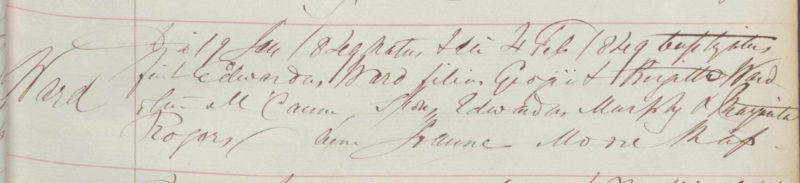 Ward
Die 19 Jan 1849 natus & die 4 Feb 1849 baptizatus
fuit Edwardus Ward filius Georgii & Brigitta Ward
olim Mc Cann, Spons Edwardus Murphy &
Rogers Joanne Moore